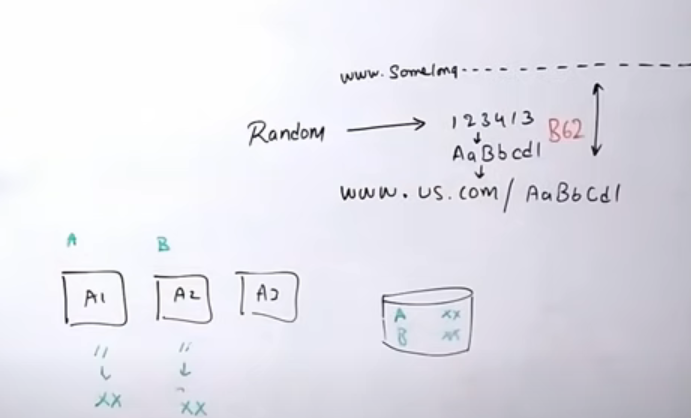 www. Somelong
Random
123413
B62
AaBbcdl
www.us.com/AaBbCdl
A B
A1 A2 A3
A XX
B XX
11 11
XX XX